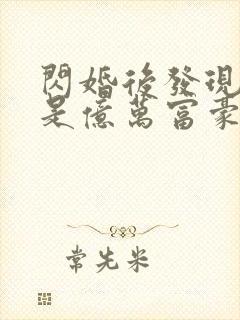 閃婚後發現
是億萬富豪
常先米